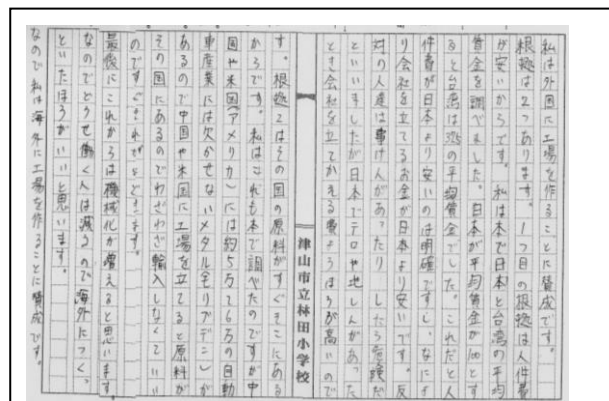 私は外国に工場を作ることに賛成です。
根拠は2つあります。1つ目の根拠は人件費
が安いからです。私は本で日本と台湾の平均
賃金を調べました。日本が平均賃金が100とす
ると台湾は の平均賃金でした。これだと人
件費が日本より安いのは明確ですし、なによ
り会社を立てるお金が日本より安いです。反
対の人達は事けんがあったり したら危険だ
といいましたが日本でテロや地しんがあった
とき会社を立てかえる費ようほうが高いので
津山市立林田小学校
す。根拠2はその国の原料がすぐそこにある
からです。私はこれも本で調べたのですが中
国や米国(アメリカ)には約5万て6万の自動
車産業には欠かせないメタル モリブデン が
あるので中国や米国に工場を立てると原料が
その国にあるのでわざわざ輸入しなくていい
のですぐ できます。
最後にこれからは機械化が増えると思います。
なのでどうせ働く人は減るので海外につくっ
といたほうがいいと思います。
なので私は海外に工場を作ることに賛成です。